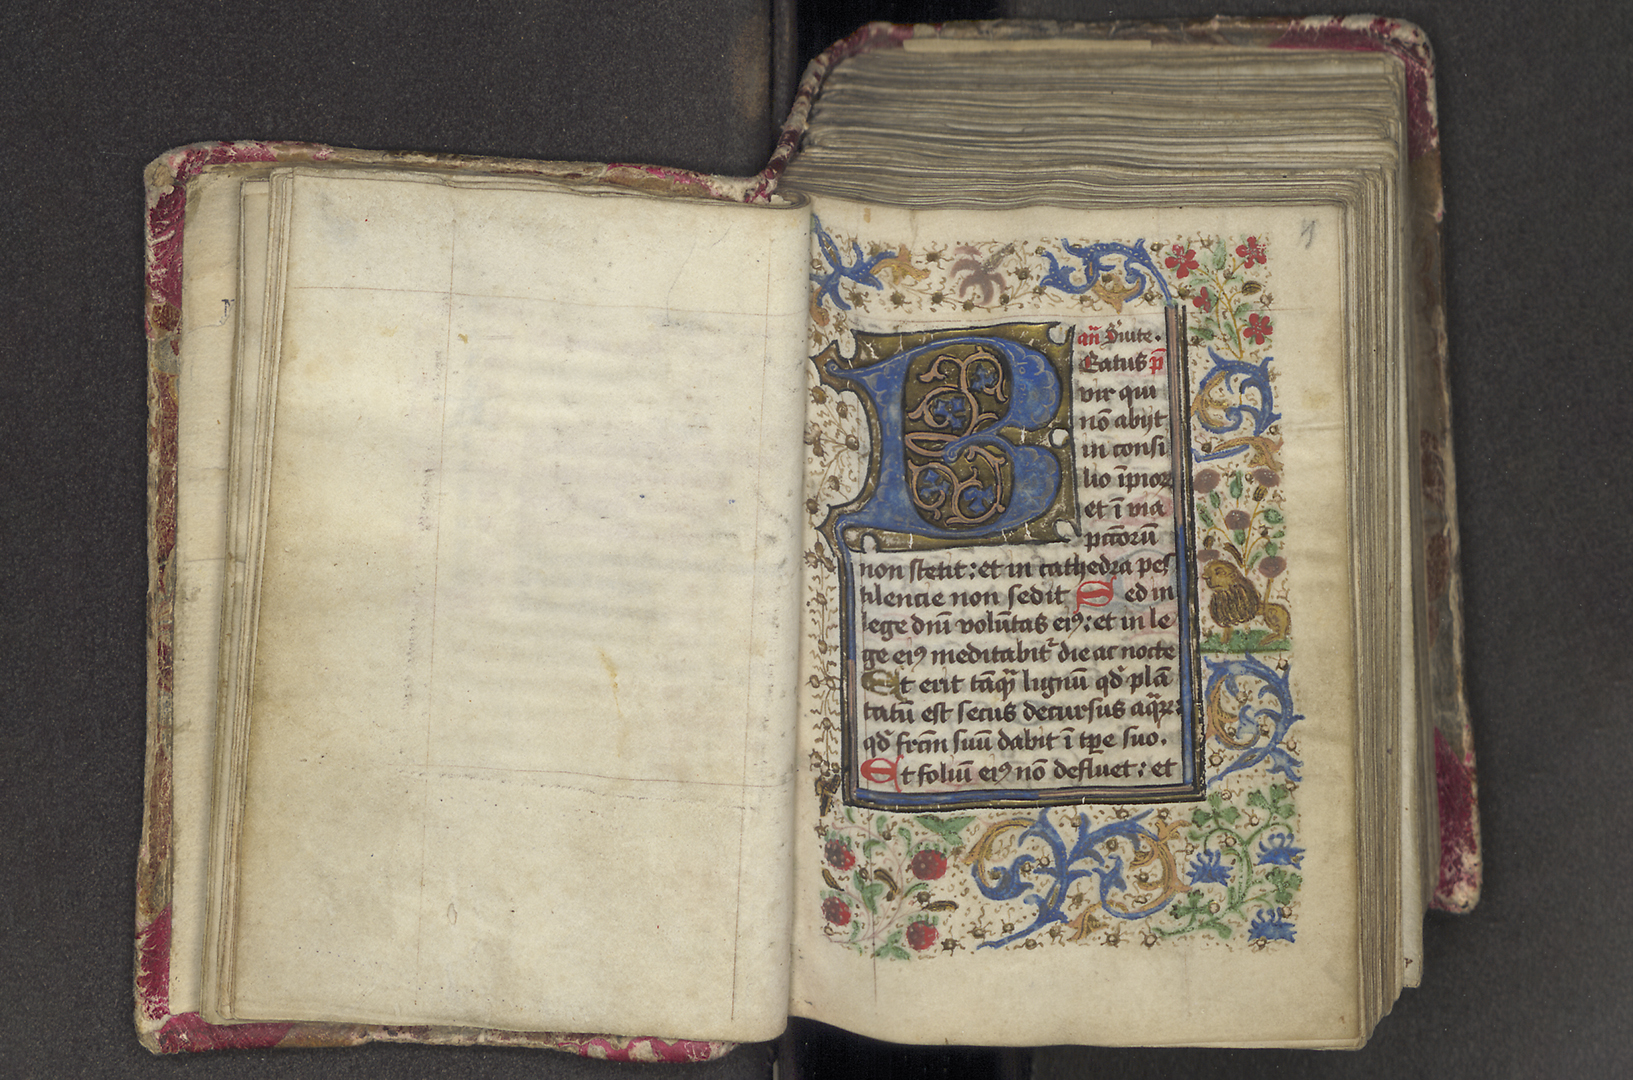 1
añ Ṽuite.
B Eatus p̃
vir qui
nō abijt
in consi
lio īpioꝝ
et ī via
pctōꝝū
non stetit: et in cathedra pes
tilencie non sedit Sed in
lege dm̄ volūtas eiꝰ: et in le
ge eiꝰ meditabit᷑ die ac nocte
Et erit tāqᷓ lignū qd̓ plā
tatū est secus decursus aqᷓꝝ:
qd̓ frcm̄ suū dabit ī tp̄e suo.
Et foliū eiꝰ nō defluet: et